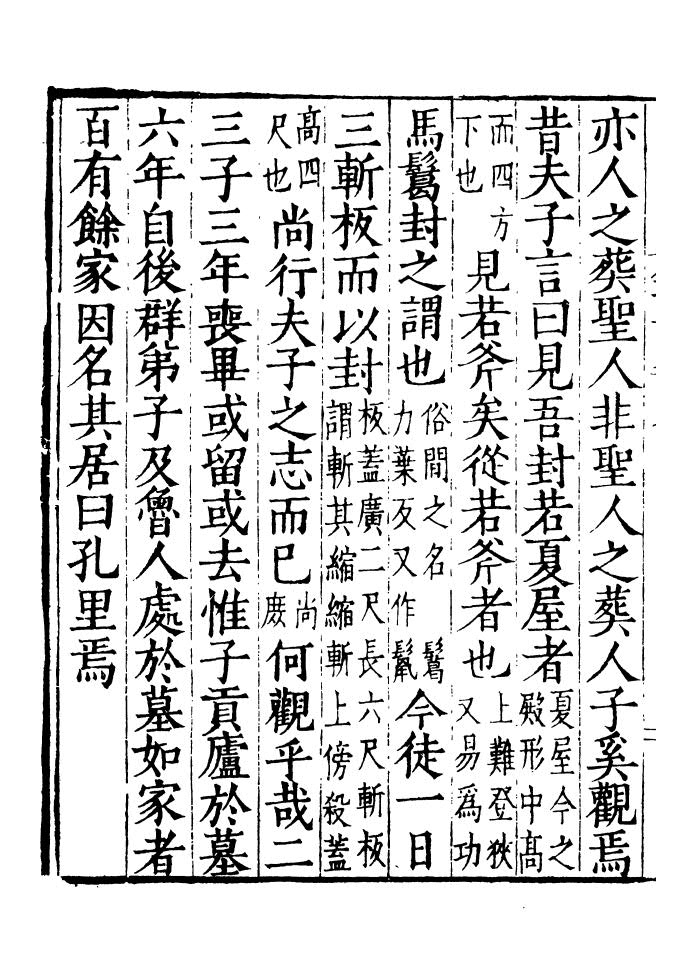 亦人之葬聖人非聖人之葬人子奚觀焉
昔夫子言曰見吾封若夏屋者夏屋今之殿形中高
而四方下也見若斧矣從若斧者也上難登狹又易爲功
馬鬣封之謂也俗閒之名鬣力葉反又作鬛今徒一日
三斬板而以封板蓋廣二尺長六尺斬板謂斬其縮縮斬上傍殺蓋
高四尺也尚行夫子之志而已尚庶何觀乎哉二
三子三年喪畢或留或去惟子貢廬於墓
六年自後群弟子及魯人處於墓如家者
百有餘家因名其居曰孔里焉